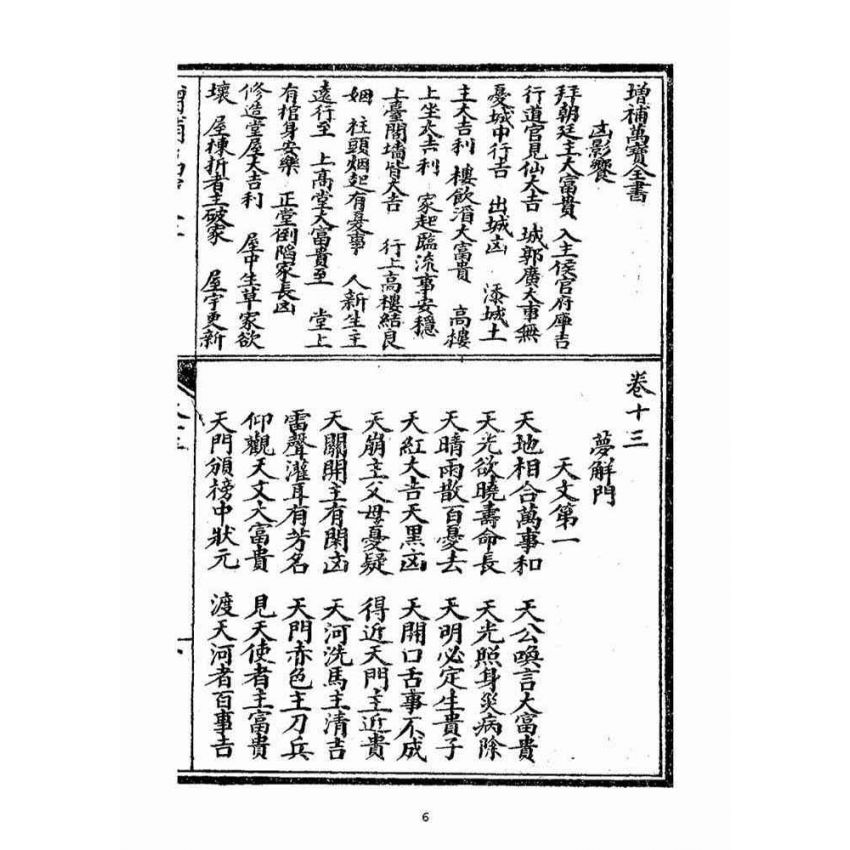 增補萬寶全書
凶影響
拜朝廷主大富貴 入主侯官府庫吉
行道宮見仙大吉 城郭廣大事無
憂城中行吉 出城凶 添城土
主大吉利 樓飲酒大富貴 高樓
上坐大吉利 家起臨流事安穩
上臺閣墻皆大吉 行上高樓結良
姻 柱頭烟起有憂事 人新生主
遠行至 上高堂大富貴至 堂上
有棺身安樂 正堂倒陷家長凶
修造堂屋大吉利 屋中生草家欲
壞 屋棟折者主破家 屋宇更新
卷十三
夢解門
天文第一
天地相合萬事和 天公喚言大富貴
天光欲曉壽命長 天光照身災病除
天晴雨散百憂去 天明必定生貴子
天紅大吉天黑凶 天開口舌事不成
天崩主父母憂疑 得近天門主近貴
天關開主有閑凶 天河洗馬主清吉
雷聲灌耳有芳名 天門赤色主刀兵
仰觀天文大富貴 見天使者主富貴
天門頒榜中狀元 渡天河者百事吉
6